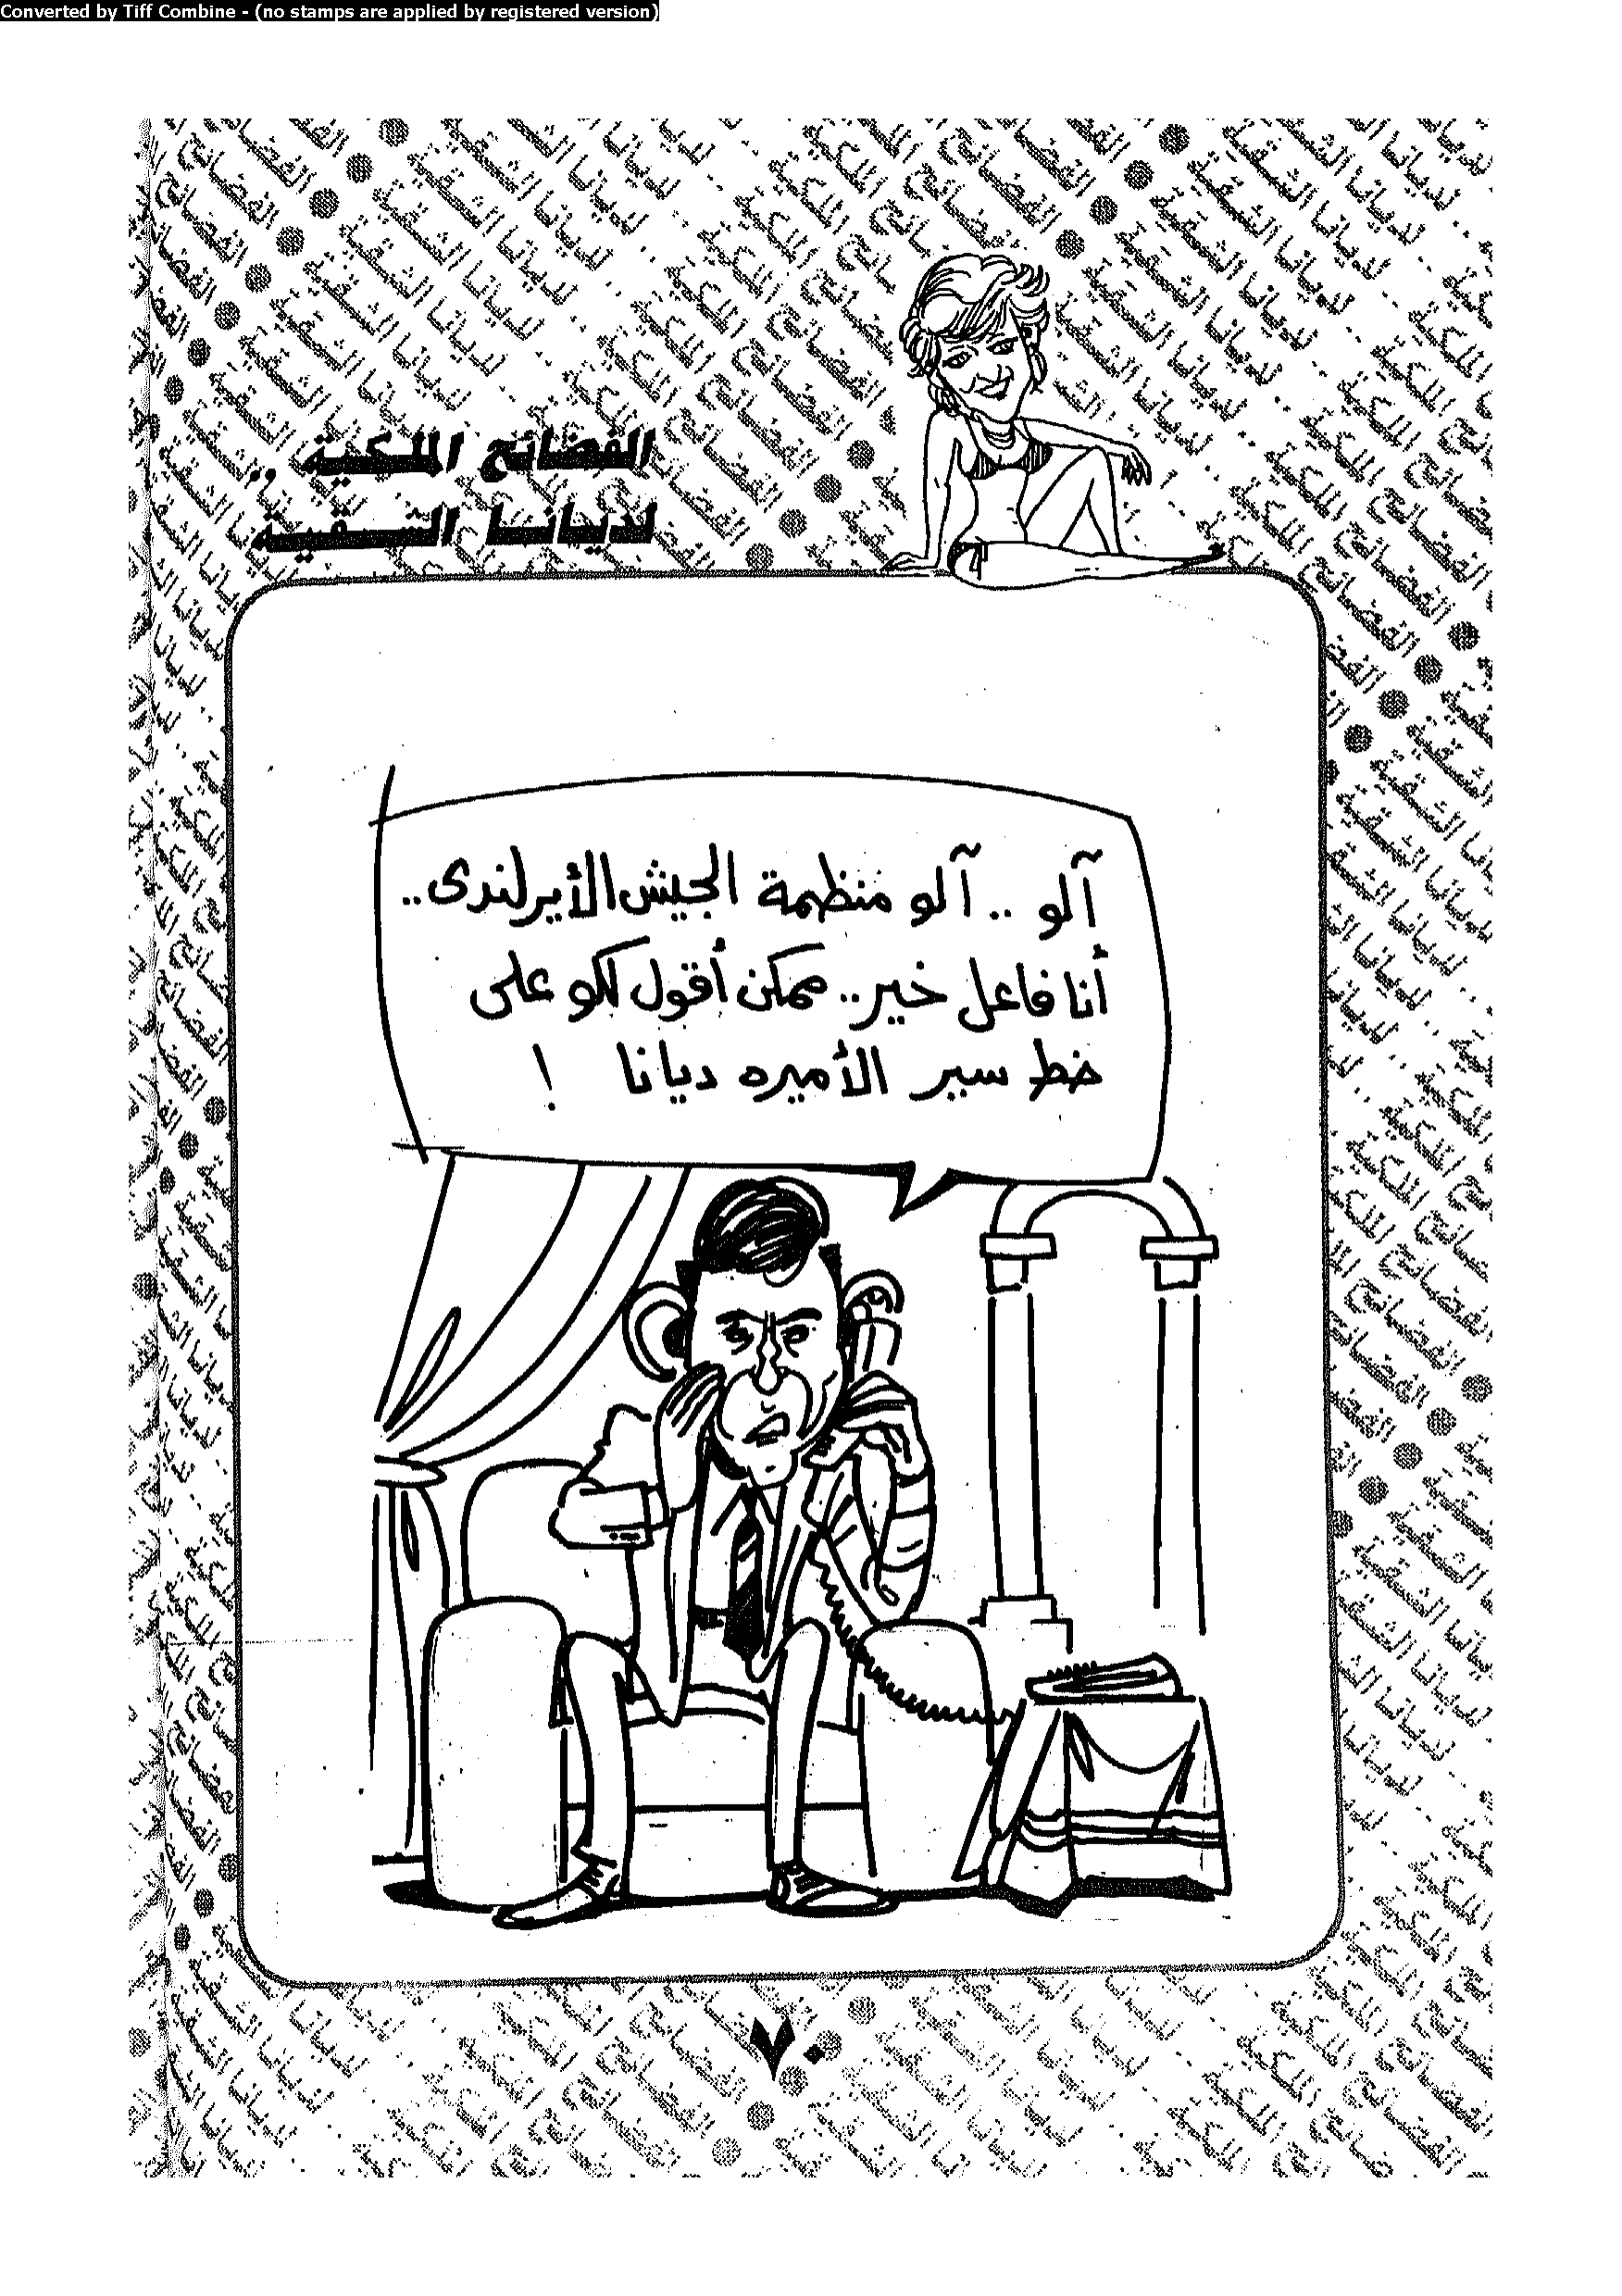 Converted by Tiff Combine - (no stamps are applied by registered version)
الفضائح الملكية ..
لديانا الشقية
آلو .. آلو منظمة الجيش الأيرلندى ..
أنا فاعل خير .. ممكن أقول لكو على
خط سير الأميره ديانا !
٧٠